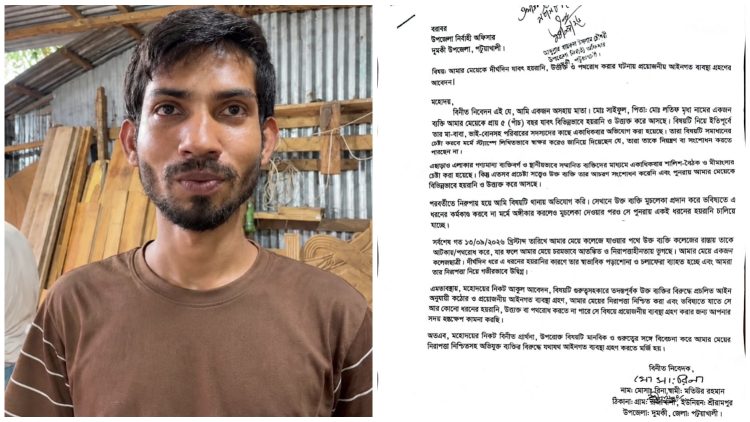 বরাবর
উপজেলা নির্বাহী অফিসার
দুমকী উপজেলা, পটুয়াখালী।
বিষয়: আমার মেয়েকে দীর্ঘদিন যাবৎ হয়রানি, উত্ত্যক্ত ও পথরোধ করার ঘটনায় প্রয়োজনীয় আইনগত ব্যবস্থা গ্রহণের
আবেদন।
মহোদয়,
বিনীত নিবেদন এই যে, আমি একজন অসহায় মাতা। মোঃ সাইফুল, পিতা: মোঃ লতিফ মৃধা নামের একজন
ব্যক্তি আমার মেয়েকে প্রায় ৫ (পাঁচ) বছর যাবৎ বিভিন্নভাবে হয়রানি ও উত্ত্যক্ত করে আসছে। বিষয়টি নিয়ে ইতিপূর্বে
তার মা-বাবা, ভাই-বোনসহ পরিবারের সদস্যদের কাছে একাধিকবার অভিযোগ করা হয়েছে। তারা বিষয়টি সমাধানের
চেষ্টা করবে মর্মে স্ট্যাম্পে লিখিতভাবে স্বাক্ষর করেও জানিয়ে দিয়েছেন যে, তারা তাকে নিয়ন্ত্রণ বা সংশোধন করতে
পারছেন না।
এছাড়াও এলাকার গণ্যমান্য ব্যক্তিবর্গ ও স্থানীয়ভাবে সম্মানিত ব্যক্তিদের মাধ্যমে একাধিকবার শালিশ-বৈঠক ও মীমাংসার
চেষ্টা করা হয়েছে। কিন্তু এতসব প্রচেষ্টা সত্ত্বেও উক্ত ব্যক্তি তার আচরণ সংশোধন করেনি এবং পুনরায় আমার মেয়েকে
বিভিন্নভাবে হয়রানি ও উত্ত্যক্ত করে আসছে।
পরবর্তীতে নিরুপায় হয়ে আমি বিষয়টি থানায় অভিযোগ করি। সেখানে উক্ত ব্যক্তি মুচলেকা প্রদান করে ভবিষ্যতে এ
ধরনের কর্মকাণ্ড করবে না মর্মে অঙ্গীকার করলেও মুচলেকা দেওয়ার পরও সে পুনরায় একই ধরনের হয়রানি চালিয়ে
যাচ্ছে।
সর্বশেষ গত ১৩/০৯/২০২৬ খ্রিস্টাব্দ তারিখে আমার মেয়ে কলেজে যাওয়ার পথে উক্ত ব্যক্তি কলেজের রাস্তায় তাকে
আটকায়/পথরোধ করে, যার ফলে আমার মেয়ে চরমভাবে আতঙ্কিত ও নিরাপত্তাহীনতায় ভুগছে। আমার মেয়ে একজন
কলেজছাত্রী। দীর্ঘদিন ধরে এ ধরনের হয়রানির কারণে তার স্বাভাবিক পড়াশোনা ও চলাফেরা ব্যাহত হচ্ছে এবং আমরা
তার নিরাপত্তা নিয়ে গভীরভাবে উদ্বিগ্ন।
এমতাবস্থায়, মহোদয়ের নিকট আকুল আবেদন, বিষয়টি গুরুত্বসহকারে তদন্তপূর্বক উক্ত ব্যক্তির বিরুদ্ধে প্রচলিত আইন
অনুযায়ী কঠোর ও প্রয়োজনীয় আইনগত ব্যবস্থা গ্রহণ, আমার মেয়ের নিরাপত্তা নিশ্চিত করা এবং ভবিষ্যতে যাতে সে
আর কোনো ধরনের হয়রানি, উত্ত্যক্ত বা পথরোধ করতে না পারে সে বিষয়ে প্রয়োজনীয় ব্যবস্থা গ্রহণ করার জন্য আপনার
সদয় হস্তক্ষেপ কামনা করছি।
অতএব, মহোদয়ের নিকট বিনীত প্রার্থনা, উপরোক্ত বিষয়টি মানবিক ও গুরুত্বের সঙ্গে বিবেচনা করে আমার মেয়ের
নিরাপত্তা নিশ্চিতসহ অভিযুক্ত ব্যক্তির বিরুদ্ধে যথাযথ আইনগত ব্যবস্থা গ্রহণ করতে মর্জি হয়।
বিনীত নিবেদক,
মোসাঃ রিনা
নাম: মোসাঃ রিনা, স্বামী: মতিউর রহমান
ঠিকানা: গ্রাম: ইউনিয়ন: শ্রীরামপুর
উপজেলা: দুমকী, জেলা: পটুয়াখালী।